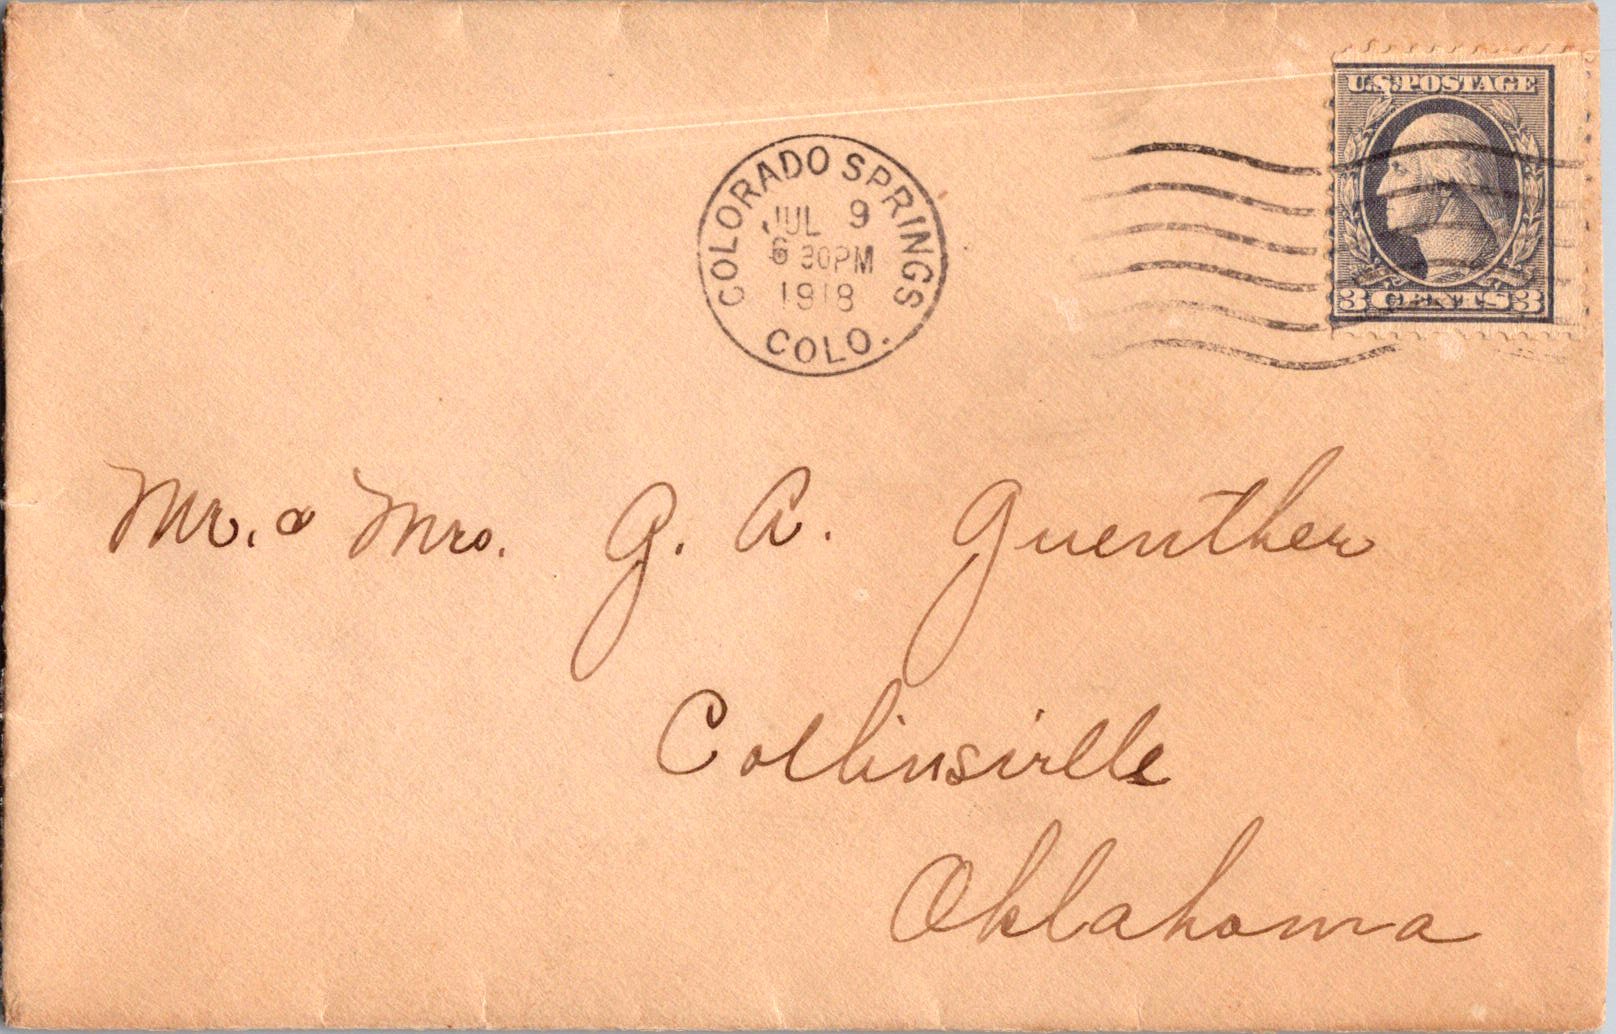 U.S. POSTAGE
3 CENTS 3
COLORADO SPRINGS
JUL 9
6 30PM
1918
COLO.
Mr. & Mrs. G. A. Guenther
Collinsville
Oklahoma